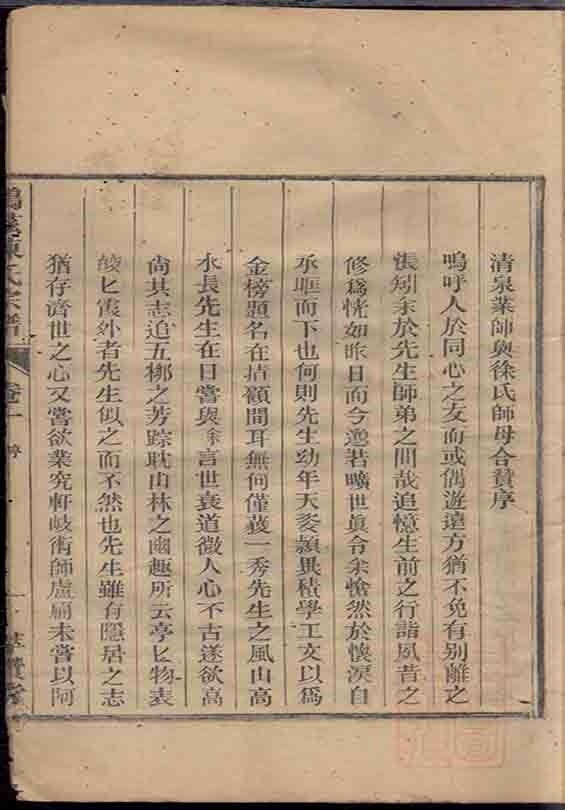 清泉葉師與徐氏師母合贊序
嗚呼人於同心之友而或偶遊遠方猶不免有别離之
悵矧余於先生師弟之間哉追憶生前之行詣夙昔之
修爲恍如昨日而今邈若曠世眞令余愴然於懷淚自
承眶而下也何則先生幼年天姿頴異積學工文以爲
金榜題名在指顧間耳無何僅葢一秀先生之風山高
水長先生在日嘗與余言世衰道微人心不古遂欲高
尚其志追五柳之芳踪耽山林之幽趣所云亭匕物表
皎匕霞外者先生似之而不然也先生雖有隱居之志
猶存濟世之心又嘗欲業究軒岐術師盧扁未嘗以阿
陳氏宗譜
卷十